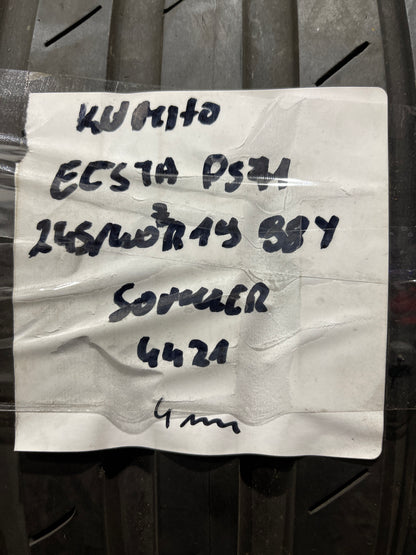 KUMHO
ECSTA PS71
245/40ZR19 98Y
SOMMER
4421
4mm